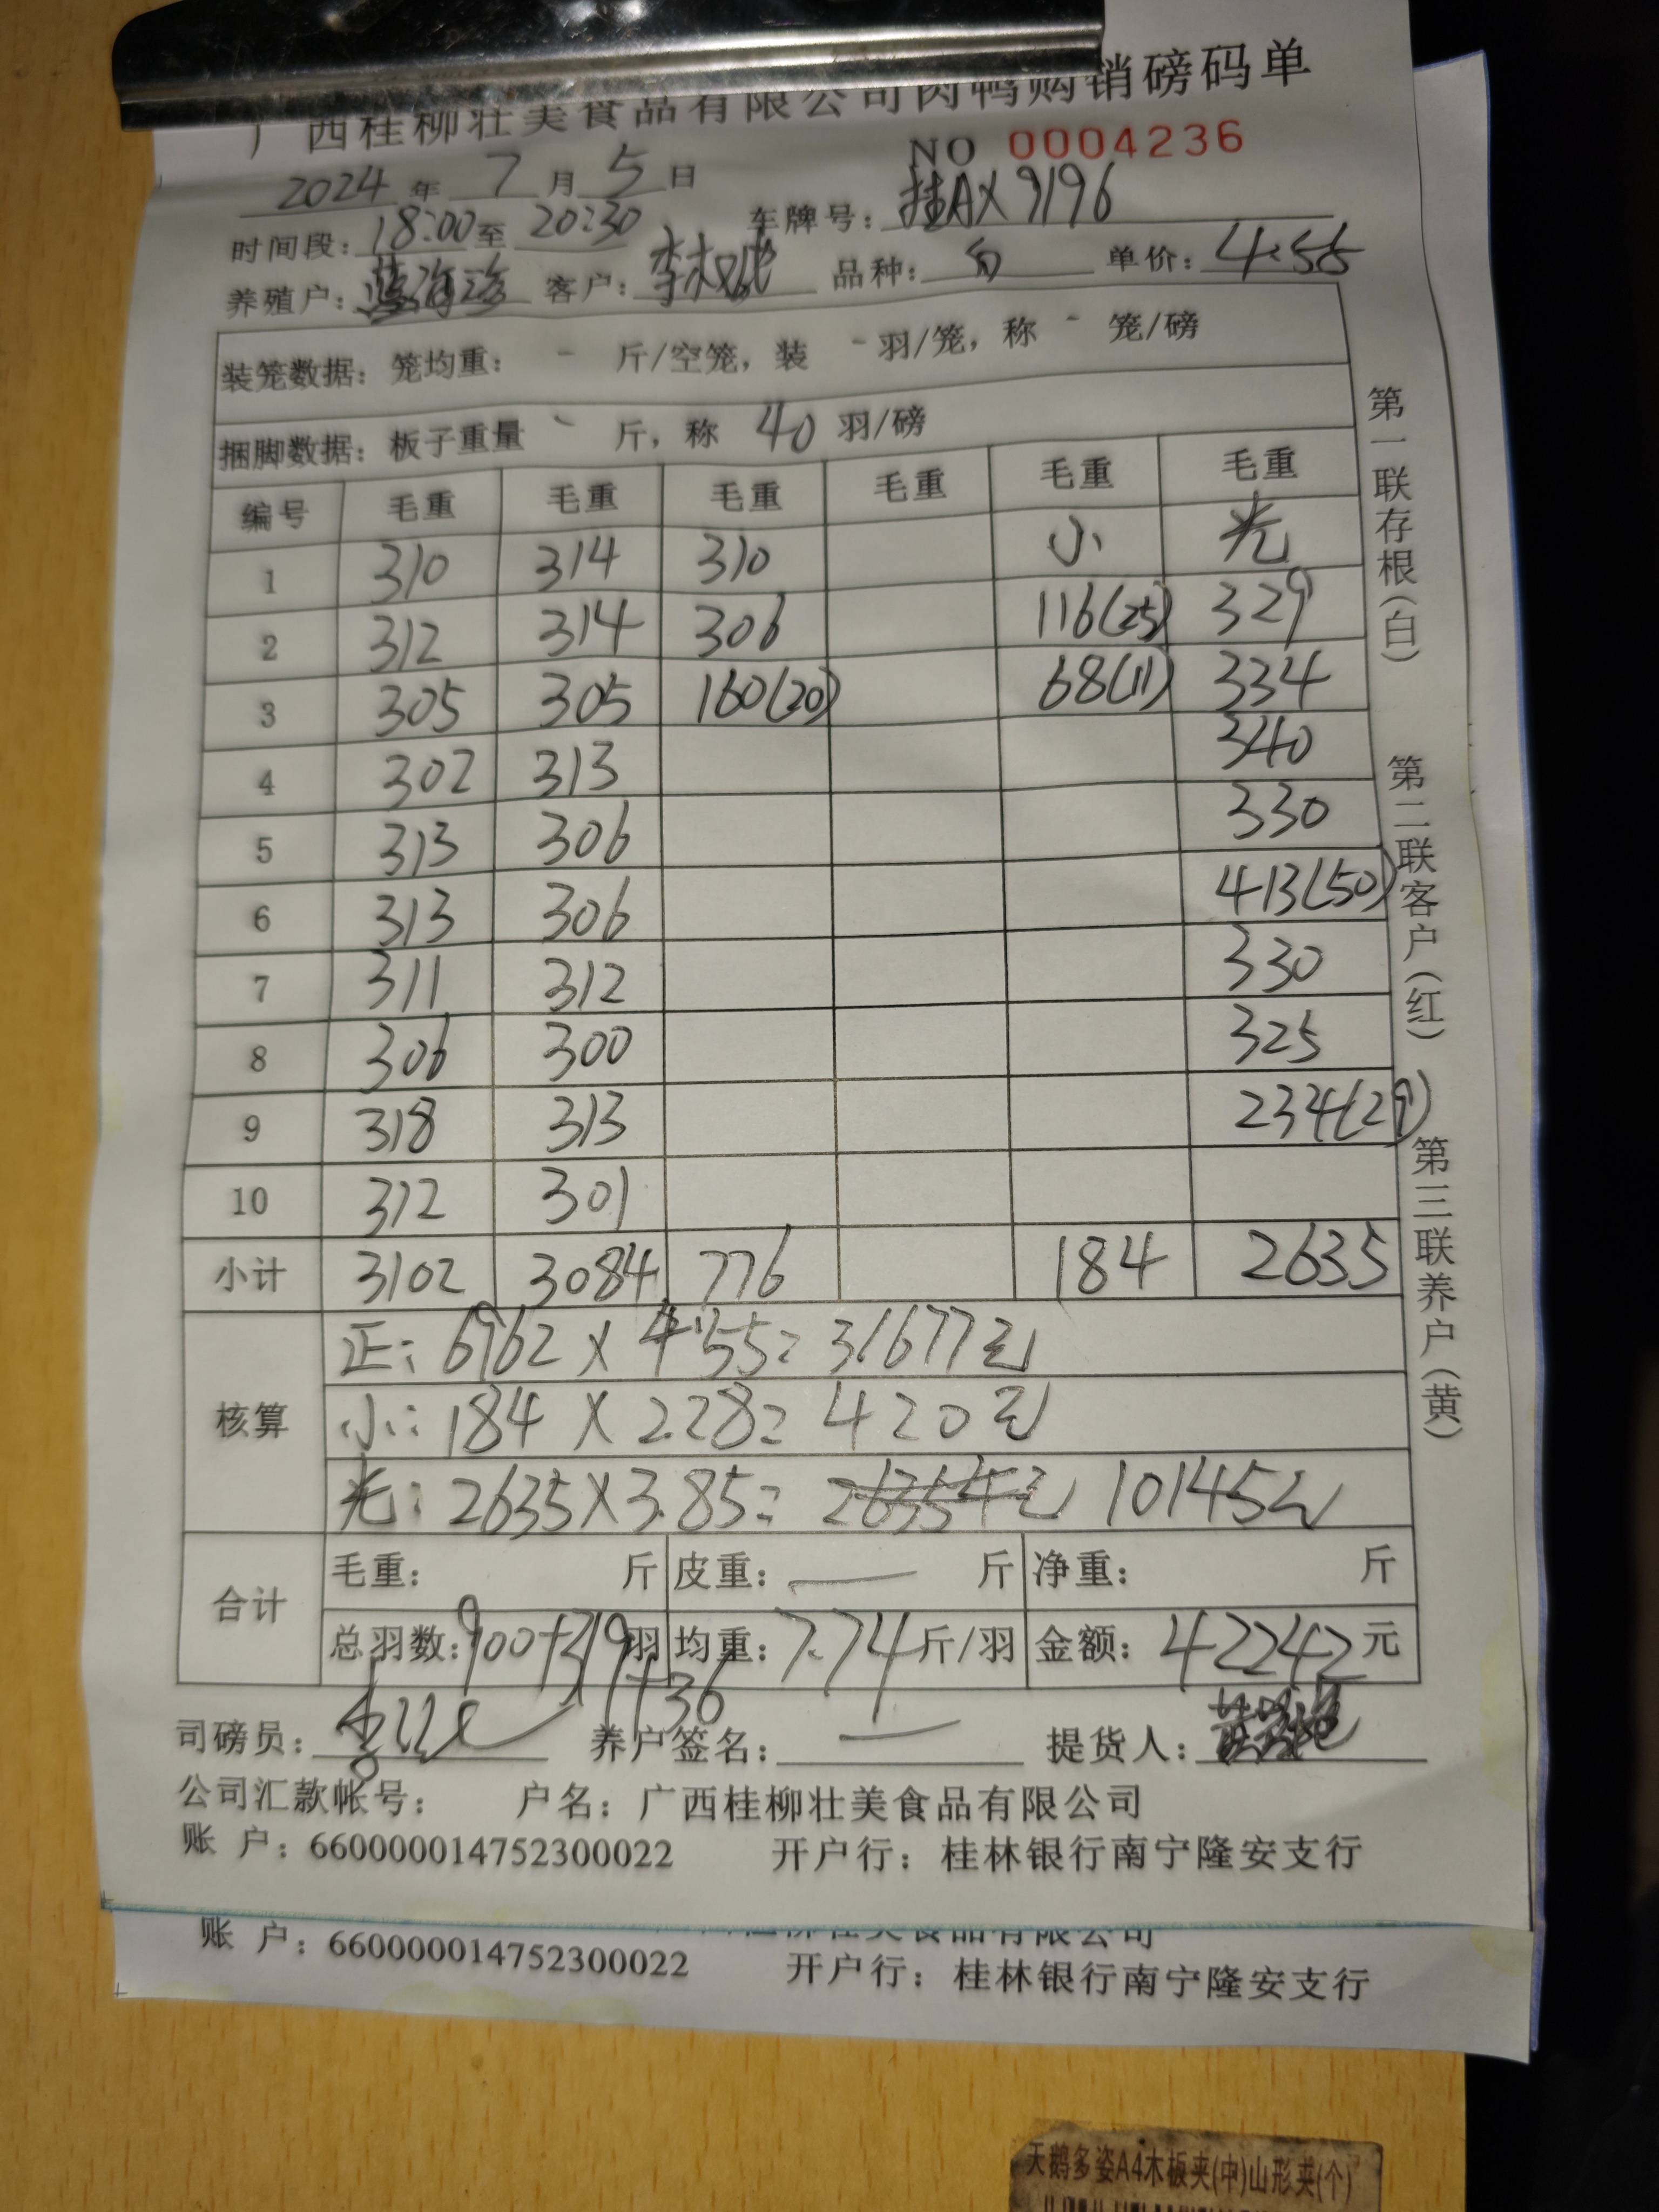 广西桂柳壮美食品有限公司肉鸭购销磅码单
NO 0004236
2024年 7月 5日
时间段：18:00至 20:30 车牌号：桂AX9196
养殖户：蓝海珍 客户： 品种： 单价：4.55
装笼数据：笼均重： - 斤/空笼，装 - 羽/笼，称 - 笼/磅
捆脚数据：板子重量 - 斤，称 40 羽/磅
编号 毛重 毛重 毛重 毛重 毛重 毛重
1 310 314 310 小 光
2 312 314 306 116(25) 329
3 305 305 160(20) 68(11) 334
4 302 313 340
5 313 306 330
6 313 306 413(50)
7 311 312 330
8 306 300 325
9 318 313 234(29)
10 312 301
小计 3102 3084 776 184 2635
核算 正：6962×4.55=31677元
小：184×2.28=420元
光：2635×3.85=26354元 10145元
合计 毛重： 斤 皮重：— 斤 净重： 斤
总羽数：900+319+36羽 均重：7.74斤/羽 金额：42242元
司磅员： 养户签名：— 提货人：
公司汇款帐号： 户名：广西桂柳壮美食品有限公司
账 户：660000014752300022 开户行：桂林银行南宁隆安支行
第一联存根(白)
第二联客户(红)
第三联养户(黄)
账 户：660000014752300022 开户行：桂林银行南宁隆安支行
天鹅多姿A4木板夹(中)山形夹(个)